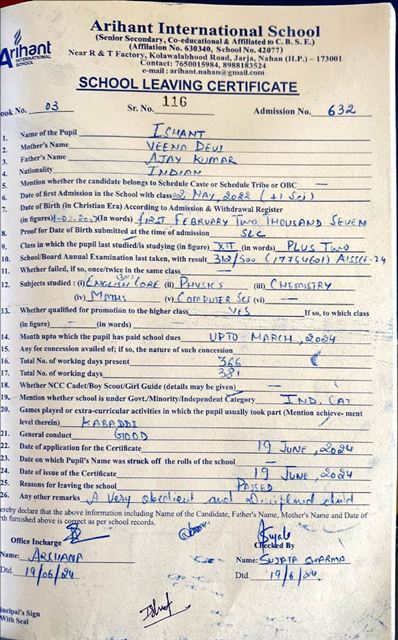 Arihant International School
(Senior Secondary, Co-educational & Affiliated to C. B. S. E.)
(Affiliation No. 630340, School No. 42077)
Near R & T Factory, Kolawalabhood Road, Jarja, Nahan (H.P.) – 173001
Contact: 7650015984, 8988183524
e-mail : arihant.nahan@gmail.com
Arihant
INTERNATIONAL
SCHOOL
SCHOOL LEAVING CERTIFICATE
ook No. 03 Sr. No. 116 Admission No. 632
1. Name of the Pupil ISHANT
2. Mother's Name VEENA DEVI
3. Father's Name AJAY KUMAR
4. Nationality INDIAN
5. Mention whether the candidate belongs to Schedule Caste or Schedule Tribe or OBC —
6. Date of first Admission in the School with class 2 MAY, 2022 (+1 Sci)
7. Date of Birth (in Christian Era) According to Admission & Withdrawal Register
(in figures) (In words) FIRST FEBRUARY TWO THOUSAND SEVEN
8. Proof for Date of Birth submitted at the time of admission SLC
9. Class in which the pupil last studied/is studying (in figure) XII (in words) PLUS TWO
10. School/Board Annual Examination last taken, with result /500 (17754601) AISSCE-24
11. Whether failed, if so, once/twice in the same class —
12. Subjects studied : (i) ENGLISH CORE (ii) PHYSICS (iii) CHEMISTRY
(iv) MATHS (v) COMPUTER SCS (vi) —
13. Whether qualified for promotion to the higher class YES If so, to which class
(in figure) — (in words) —
14. Month upto which the pupil has paid school dues UPTO MARCH, 2024
15. Any fee concession availed of; if so, the nature of such concession —
16. Total No. of working days present 366
17. Total No. of working days 381
18. Whether NCC Cadet/Boy Scout/Girl Guide (details may be given) —
19. Mention whether school is under Govt./Minority/Independent Category IND. CAT
20. Games played or extra-curricular activities in which the pupil usually took part (Mention achieve- ment
level therein) KABADDI
21. General conduct GOOD
22. Date of application for the Certificate 19 JUNE, 2024
23. Date on which Pupil's Name was struck off the rolls of the school —
24. Date of issue of the Certificate 19 JUNE, 2024
25. Reasons for leaving the school PASSED
26. Any other remarks A Very obedient and Disciplined child
ereby declare that the above information including Name of the Candidate, Father's Name, Mother's Name and Date of
th furnished above is correct as per school records.
Office Incharge Checked By
Name: ARCHANA Name: SUJATA SHARMA
Dtd. 19/06/24 Dtd. 19/6/24
incipal's Sign
With Seal